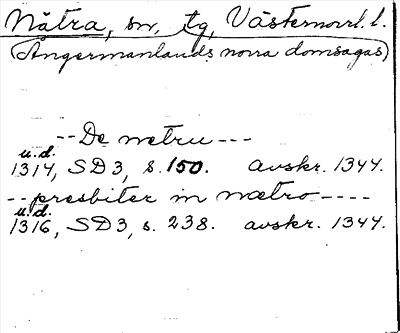 Nätra, sn, tg, Västernorrl. l.
(Ångermanlands norra domsagas)
--De netru---
u.d.
1314, SD3, s. 150. avskr. 1344.
--presbiter in nætro----
u.d.
1316, SD3, s. 238. avskr. 1344.